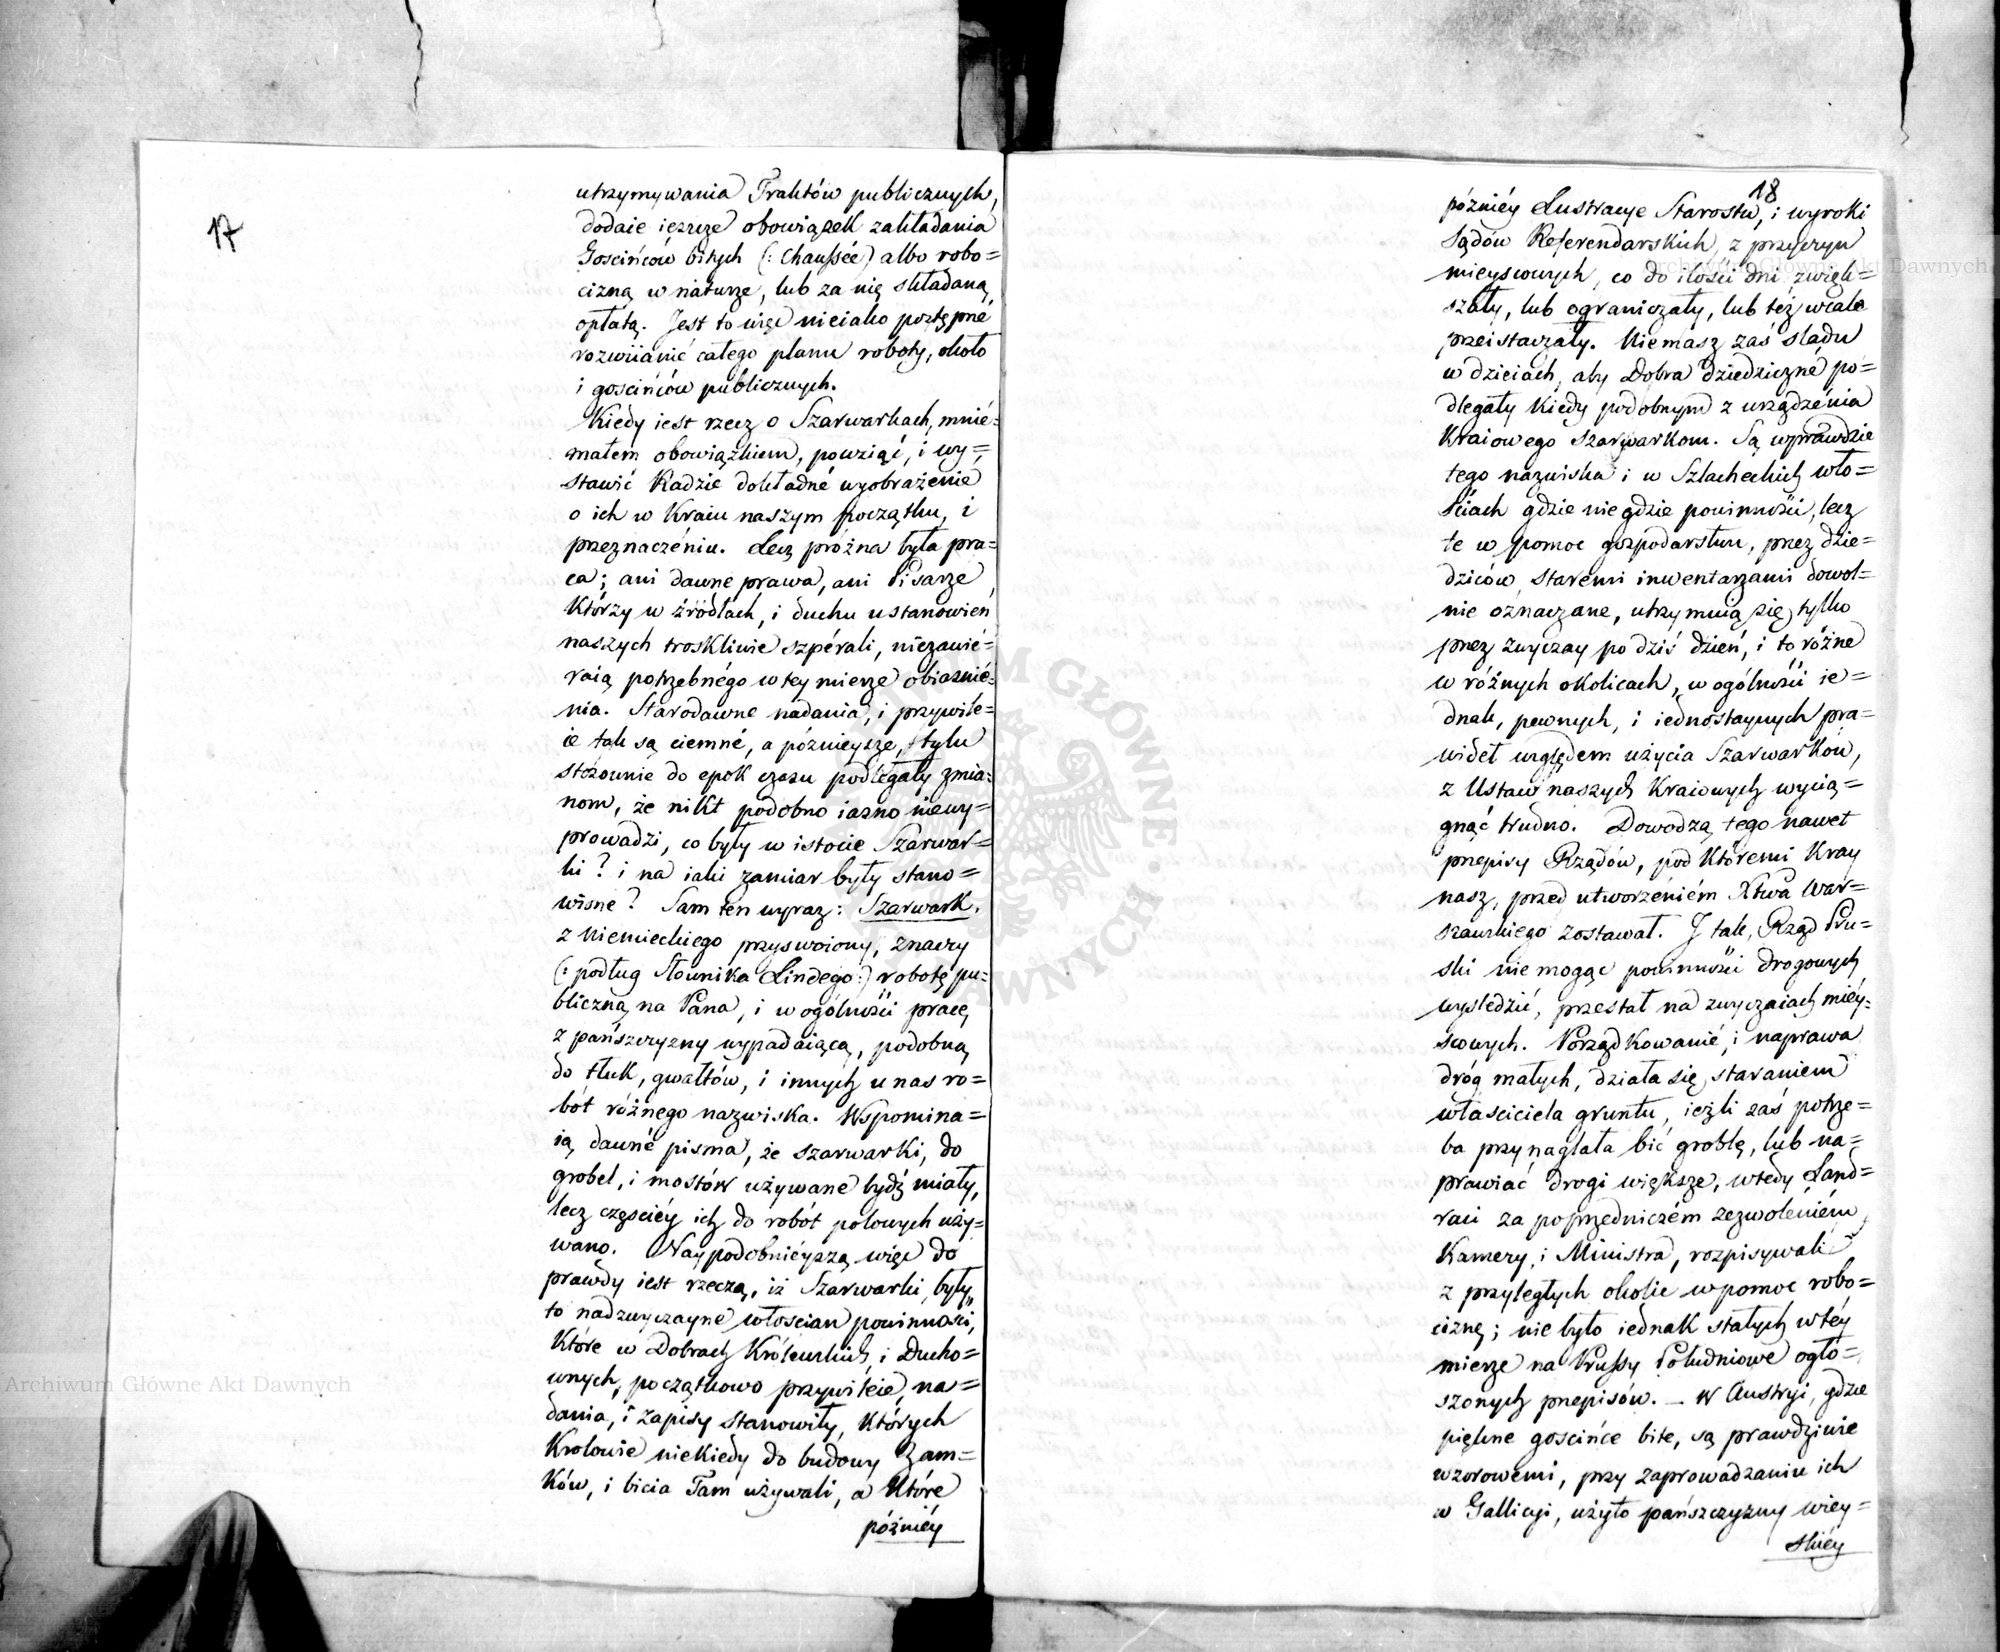 17
utrzymywania Traktów publicznych,
dodaie ieszcze obowiązek zakładania
Gościńców bitych (: Chaussée) albo robo=
cizną w naturze, lub za nię składaną
opłatą. Jest to więc nieiako postępne
rozwiianié całego planu roboty, około
i gościńców publicznych.
Kiedy iest rzecz o Szarwarkach, mnié=
małem obowiązkiem, powziąć, i wy=
stawić Radzie dokładné wyobrażenie
o ich w Kraiu naszym początku, i
przeznaczéniu. Lecz próżna była pra=
ca; ani dawne prawa, ani Pisarze,
Którzy w źródłach, i duchu ustanowień
naszych troskliwie szpérali, niezawié=
raią potrzebnégo w tey mierze obiasnié=
nia. Starodawne nadania, i przywile=
ie tak są ciemné, a poźnieysze, tylu
stósownie do epok czasu podlegały zmia=
nom, że nikt podobno iasno niewy=
prowadzi, co były w istocie Szarwar=
ki? i na iaki zamiar były stano=
wione? Sam ten wyraz: Szarwark,
z Niemieckiego przyswoiony, znaczy
(: podług Słownika Lindego:) robotę pu=
bliczną na Pana, i w ogólności pracę
z pańszczyzny wypadaiącą, podobną
do tłuk, gwałtów, i innych u nas ro=
bót różnego nazwiska. Wspomina=
ią dawné pisma, że szarwarki, do
grobel, i mostów używane bydź miały,
lecz częściéy ich do robót polowych uży=
wano. Naypodobniéyszą więc do
prawdy iest rzeczą, iż Szarwarki, były
to nadzwyczayne włościan powinności,
Które w Dobrach Królewskich i Ducho=
wnych, początkowo przywiléie, na=
dania, i zapisy stanowiły, których
Krolowie niekiedy do budowy Zam=
Ków, i bicia Tam używali, a Które
późniéy
18
późniéy Lustracye Starostw, i wyroki
Sądów Referendarskich, z przyczyn
mieyscowych, co do ilości dni zwięk=
szały, lub ograniczały, lub też wcale
przeistaczały. Niemasz zaś sladu
w dzieiach, aby Dobra dziedziczné po=
dlegały Kiedy podobnym z urządzénia
Kraiowego szarwarkom. Są wprawdzie
tego nazwiska i w Szlacheckich wło=
ściach gdzie niegdzie powinności, lecz
te w pomoc gospodarstwu, przez dzie=
dziców staremi inwentarzami dowol=
nie oznaczane, utrzymuią się, tylko
przez zwyczay po dziś dzień, i to różne
w różnych okolicach, w ogólności ie=
dnak, pewnych, i iednostaynych pra=
wideł względem użycia Szarwarków,
z Ustaw naszych Kraiowych wycią=
gnąć trudno. Dowodzą tego nawet
przepisy Rządów, pod Któremi Kray
nasz, przed utworzéniém Xtwa War=
szawskiego zostawał. I tak, Rząd Pru=
ski nie mogąc powinności drogowych
wysledzić, przestał na zwyczaiach miéy=
scowych. Porządkowanié, i naprawa
dróg małych, działa się, staraniém
właściciela gruntu, ieżli zaś potrze=
ba przynaglała bić groblę, lub na=
prawiać drogi większe, wtedy Land=
raci za poprzedniczém zezwoléniém
Kamery, i Ministra, rozpisywali
z przyległych okolic w pomoc robo=
ciznę; nie było iednak stałych w téy
mierze na Prussy Południowe ogło=
szonych przepisów. _ W Austryi, gdzie
piękne goscińce bite, są prawdziwie
wzorowemi, przy zaprowadzaniu ich
w Gallicyi, użyto pańszczyzny wiey=
skiéy
Archiwum Główne Akt Dawnych